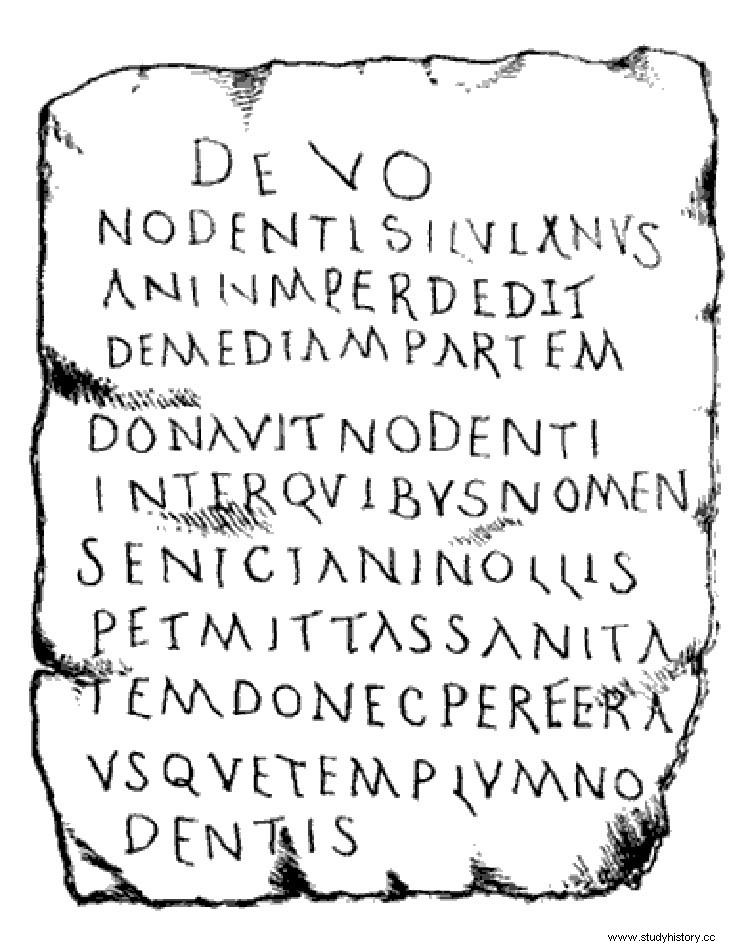 DEVO
NODENTI SILVIANVS
ANILVM PERDEDIT
DEMEDIAM PARTEM
DONAVIT NODENTI
INTER QVIBVS NOMEN
SENICIANI NOLLIS
PETMITTAS SANITA
TEM DONEC PERFERA
VSQVE TEMPLVM NO
DENTIS
www.studyhistory.cc